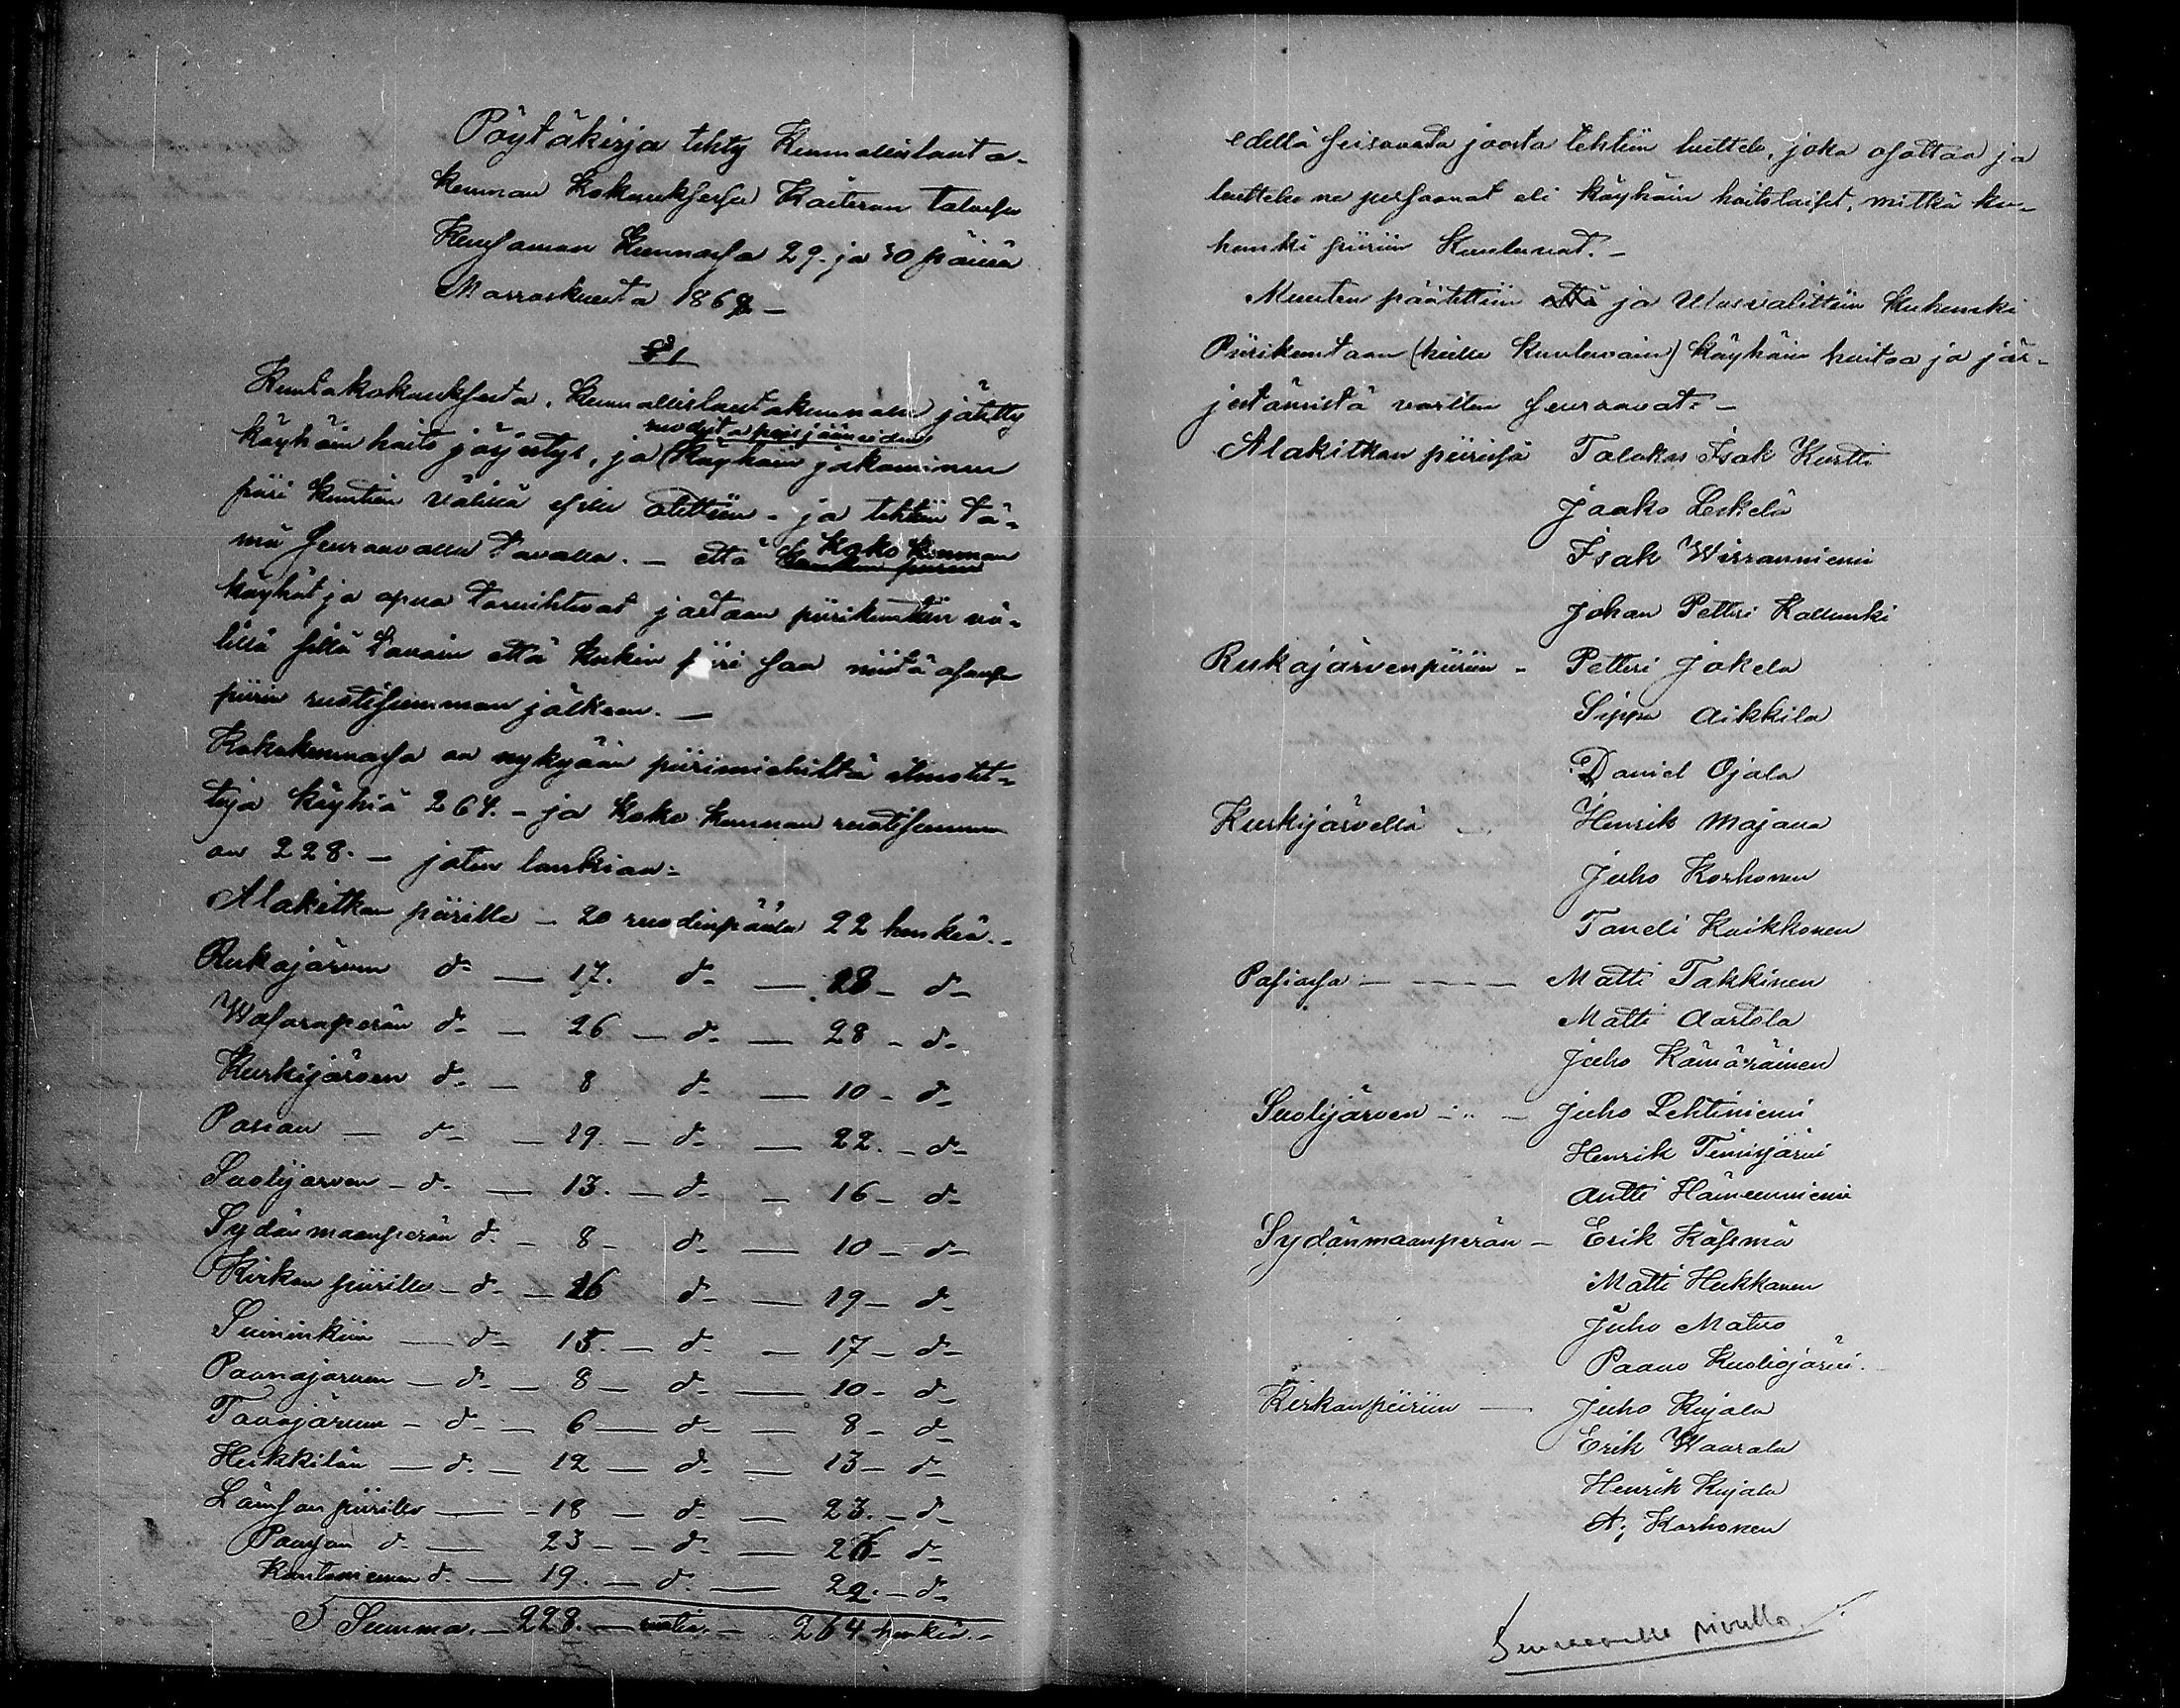 Pöytäkirja tehty Kunnallislauta-
kunnan Kokouksessa Kaiteran talossa
Kuusamon Kunnassa 29. ja 30 päivä
Marraskuuta 1868 —
§ 1
Kuntakokoukselta, Kunnallislautakunnalle jätetty
ruodusta pois jääneiden
käyhäin hoito järjestys, ja Käyhäin jakaminen
piiri Kuntien välillä esille otettiin - ja tehtiin tä-
mä seuraavalla tavalla. — että Koko Kunnan
käyhät ja apua tarvihtevat jaetaan piirikuntien vä-
lillä sillä tavoin että kukin piiri saa niitä osansa
piirin ruotisumman jälkeen. —
Kokokunnassa on nykyään piirimiehiltä ilmotet-
tuja käyhiä 264. - ja koko kunnan ruotisumma
on 228. — joten lankiaa:
Alakitkan piirille — 20 ruodinpäälle 22 henkiä. -
Rukajärven d- — 17. d- — 18 - d-
Wasaraperän d- — 26 — d- — 28 - d-
Kurkijärven d- — 8 d- — 10 - d-
Posion — d- — 19. — d- — 22. - d-
Suolijärven - d- — 13. — d- — 16 - d-
Sydänmaanperän d- — 8 - d- — 10 - d-
Kirkon piirille - d- — 16 d- — 19 - d-
Suininkiin — d- 15. — d- — 17 - d-
Paanajärven — d- — 8 — d- — 10 - d-
Tavajärven — d- — 6 — d- — 8 - d-
Heikkilän — d- — 12 — d- — 13 - d-
Lämsän piirille — 18 — d- — 23. - d-
Poussun d- — 23 — d- — 26 - d-
Kantoniemen d- — 19. — d- — 22. - d-
Summa. — 228. — ruotia. — 264 henkiä. -
edellä seisovasta jaosta tehtiin luettelo, joka osottaa ja
luettelee ne persoonat eli käyhäin hoitolaiset, mitkä ku-
henki piiriin kuuluvat. -
Muuten päätettiin ja Ulosvalittiin kuhenki
Piirikuntaan (heille kuuluvain) käyhäin hoitoa ja jär-
jestämistä varten seuraavat: -
Alakitkan piirissä Talokas Isak Kurtti
Jaako Leskelä
Isak Wirranniemi
Johan Petteri Kallunki
Rukajärvenpiiriin - Petteri Jokela
Sippo Aikkila
Daniel Ojala
Kurkijärvellä — Henrik Majava
Juho Korhonen
Taneli Kaikkonen
Posiossa — — — Matti Takkinen
Matti Aartola
Juho Kämäräinen
Suolijärven — Juho Lehtiniemi
Henrik Tiinisjärvi
Antti Hämeenniemi
Sydänmaanperän — Erik Käsmä
Matti Hukkanen
Juho Matero
Paavo Kuoliojärvi.
Kirkonpiiriin — Juho Kujala
Erik Waarala
Henrik Kujala
A; Korhonen
Seuraavalle sivulle